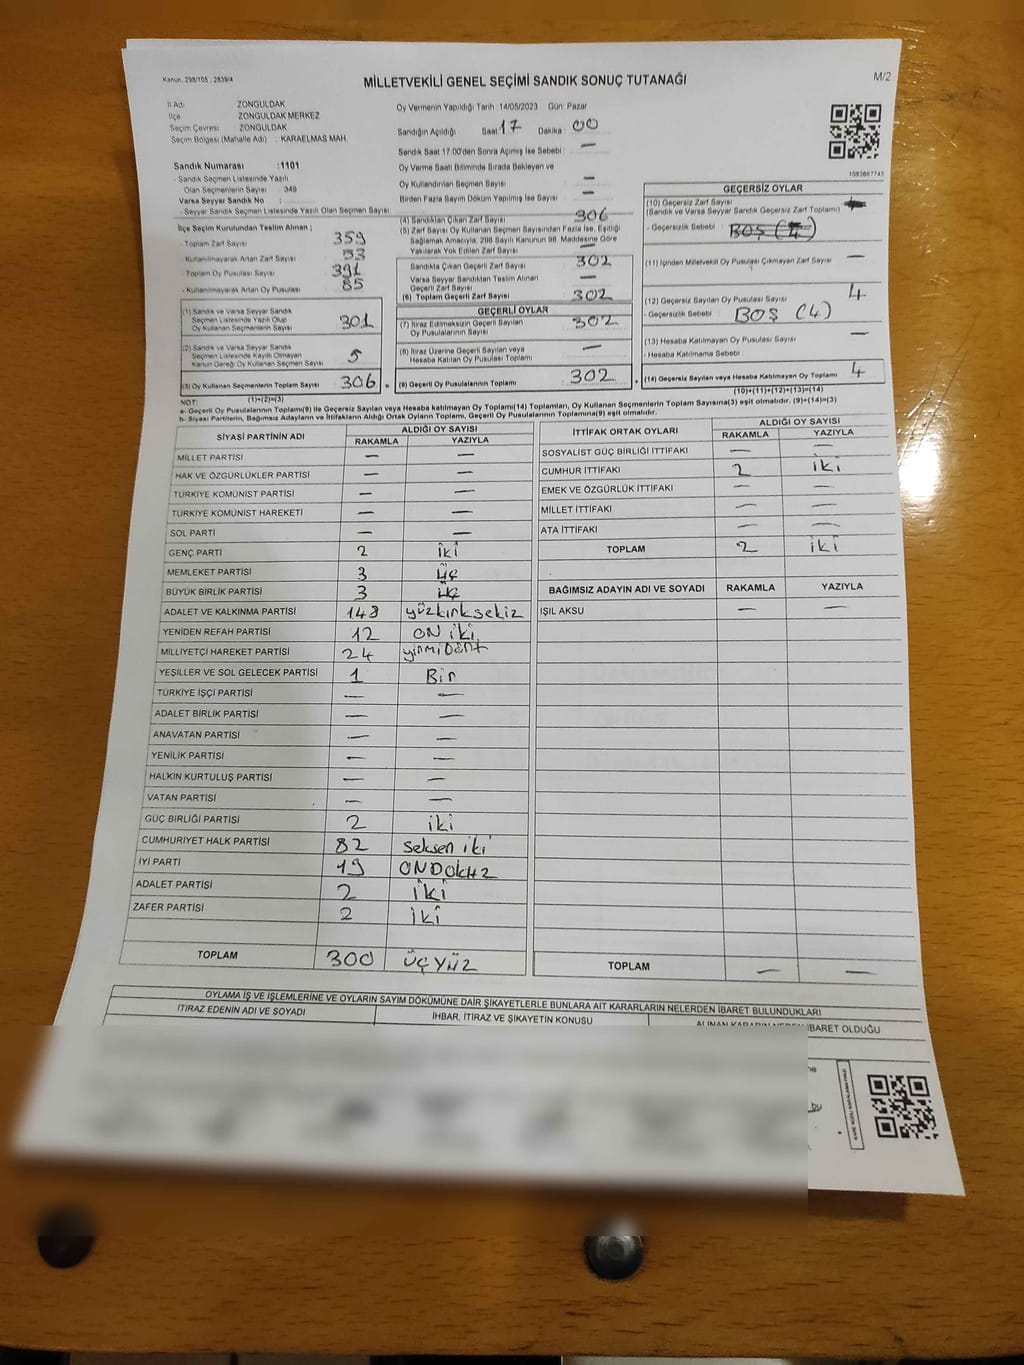 Kanun. 298/105 , 2839/4
MİLLETVEKİLİ GENEL SEÇİMİ SANDIK SONUÇ TUTANAĞI
M/2
İl Adı ZONGULDAK
İlçe ZONGULDAK MERKEZ
Seçim Çevresi ZONGULDAK
Seçim Bölgesi (Mahalle Adı) : KARAELMAS MAH.
Sandık Numarası :1101
- Sandık Seçmen Listesinde Yazılı
Olan Seçmenlerin Sayısı : 349
Varsa Seyyar Sandık No :
- Seyyar Sandık Seçmen Listesinde Yazılı Olan Seçmen Sayısı
Oy Vermenin Yapıldığı Tarih :14/05/2023 Gün: Pazar
Sandığın Açıldığı Saat 17 Dakika : 00
Sandık Saat 17:00'den Sonra Açmış İse Sebebi : —
Oy Verme Saati Bitiminde Sırada Bekleyen ve
Oy Kullandırılan Seçmen Sayısı —
Birden Fazla Sayım Döküm Yapılmış İse Sayısı —
1083667745
İlçe Seçim Kurulundan Teslim Alınan ;
- Toplam Zarf Sayısı 359
- Kullanılmayarak Artan Zarf Sayısı 53
- Toplam Oy Pusulası Sayısı 391
- Kullanılmayarak Artan Oy Pusulası 85
(1) Sandık ve Varsa Seyyar Sandık
Seçmen Listesinde Yazılı Olup
Oy Kullanan Seçmenlerin Sayısı 301
(2) Sandık ve Varsa Seyyar Sandık
Seçmen Listesinde Kayıtlı Olmayan
Kanun Gereği Oy Kullanan Seçmen Sayısı 5
(3) Oy Kullanan Seçmenlerin Toplam Sayısı 306
(1)+(2)=(3)
(4) Sandıktan Çıkan Zarf Sayısı 306
(5) Zarf Sayısı Oy Kullanan Seçmen Sayısından Fazla İse, Eşitliği
Sağlamak Amacıyla, 298 Sayılı Kanunun 98. Maddesine Göre
Yakılarak Yok Edilen Zarf Sayısı —
Sandıkta Çıkan Geçerli Zarf Sayısı 302
Varsa Seyyar Sandıktan Teslim Alınan
Geçerli Zarf Sayısı —
(6) Toplam Geçerli Zarf Sayısı 302
GEÇERLİ OYLAR
(7) İtiraz Edilmeksizin Geçerli Sayılan
Oy Pusulalarının Sayısı 302
(8) İtiraz Üzerine Geçerli Sayılan veya
Hesaba Katılan Oy Pusulası Toplamı —
(9) Geçerli Oy Pusulalarının Toplamı 302
GEÇERSİZ OYLAR
(10) Geçersiz Zarf Sayısı
(Sandık ve Varsa Seyyar Sandık Geçersiz Zarf Toplamı)
- Geçersizlik Sebebi : BOŞ (4)
(11) İçinden Milletvekili Oy Pusulası Çıkmayan Zarf Sayısı —
(12) Geçersiz Sayılan Oy Pusulası Sayısı 4
- Geçersizlik Sebebi : BOŞ (4)
(13) Hesaba Katılmayan Oy Pusulası Sayısı —
- Hesaba Katılmama Sebebi :
(14) Geçersiz Sayılan veya Hesaba Katılmayan Oy Toplamı 4
(10)+(11)+(12)+(13)=(14)
NOT:
a- Geçerli Oy Pusulalarının Toplamı(9) ile Geçersiz Sayılan veya Hesaba Katılmayan Oy Toplamı(14) Toplamları, Oy Kullanan Seçmenlerin Toplam Sayısına(3) eşit olmalıdır. (9)+(14)=(3)
b- Siyasi Partilerin, Bağımsız Adayların ve İttifakların Aldığı Ortak Oyların Toplamı, Geçerli Oy Pusulalarının Toplamına(9) eşit olmalıdır.
SİYASİ PARTİNİN ADI ALDIĞI OY SAYISI
RAKAMLA YAZIYLA
MİLLET PARTİSİ — —
HAK VE ÖZGÜRLÜKLER PARTİSİ — —
TÜRKİYE KOMÜNİST PARTİSİ — —
TÜRKİYE KOMÜNİST HAREKETİ — —
SOL PARTİ — —
GENÇ PARTİ 2 iki
MEMLEKET PARTİSİ 3 üç
BÜYÜK BİRLİK PARTİSİ 3 üç
ADALET VE KALKINMA PARTİSİ 148 yüzkırksekiz
YENİDEN REFAH PARTİSİ 12 ON iki
MİLLİYETÇİ HAREKET PARTİSİ 24 yirmiDört
YEŞİLLER VE SOL GELECEK PARTİSİ 1 Bir
TÜRKİYE İŞÇİ PARTİSİ — —
ADALET BİRLİK PARTİSİ — —
ANAVATAN PARTİSİ — —
YENİLİK PARTİSİ — —
HALKIN KURTULUŞ PARTİSİ — —
VATAN PARTİSİ — —
GÜÇ BİRLİĞİ PARTİSİ 2 iki
CUMHURİYET HALK PARTİSİ 82 seksen iki
İYİ PARTİ 19 ONDOKUZ
ADALET PARTİSİ 2 iki
ZAFER PARTİSİ 2 iki
TOPLAM 300 üçyüz
İTTİFAK ORTAK OYLARI ALDIĞI OY SAYISI
RAKAMLA YAZIYLA
SOSYALİST GÜÇ BİRLİĞİ İTTİFAKI — —
CUMHUR İTTİFAKI 2 iki
EMEK VE ÖZGÜRLÜK İTTİFAKI — —
MİLLET İTTİFAKI — —
ATA İTTİFAKI — —
TOPLAM 2 iki
BAĞIMSIZ ADAYIN ADI VE SOYADI RAKAMLA YAZIYLA
IŞIL AKSU — —
TOPLAM — —
OYLAMA İŞ VE İŞLEMLERİNE VE OYLARIN SAYIM DÖKÜMÜNE DAİR ŞİKAYETLERLE BUNLARA AİT KARARLARIN NELERDEN İBARET BULUNDUKLARI
İTİRAZ EDENİN ADI VE SOYADI
İHBAR, İTİRAZ VE ŞİKAYETİN KONUSU
ALINAN KARARIN NEDEN İBARET OLDUĞU